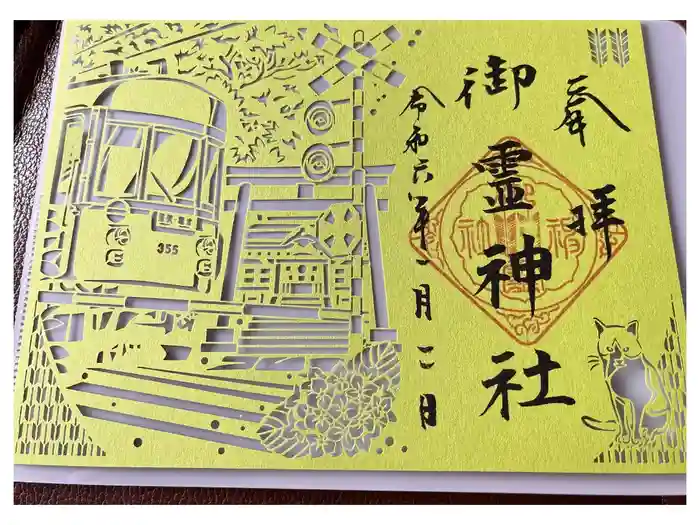 奉
拝
御霊神社
令和六年一月二日
355